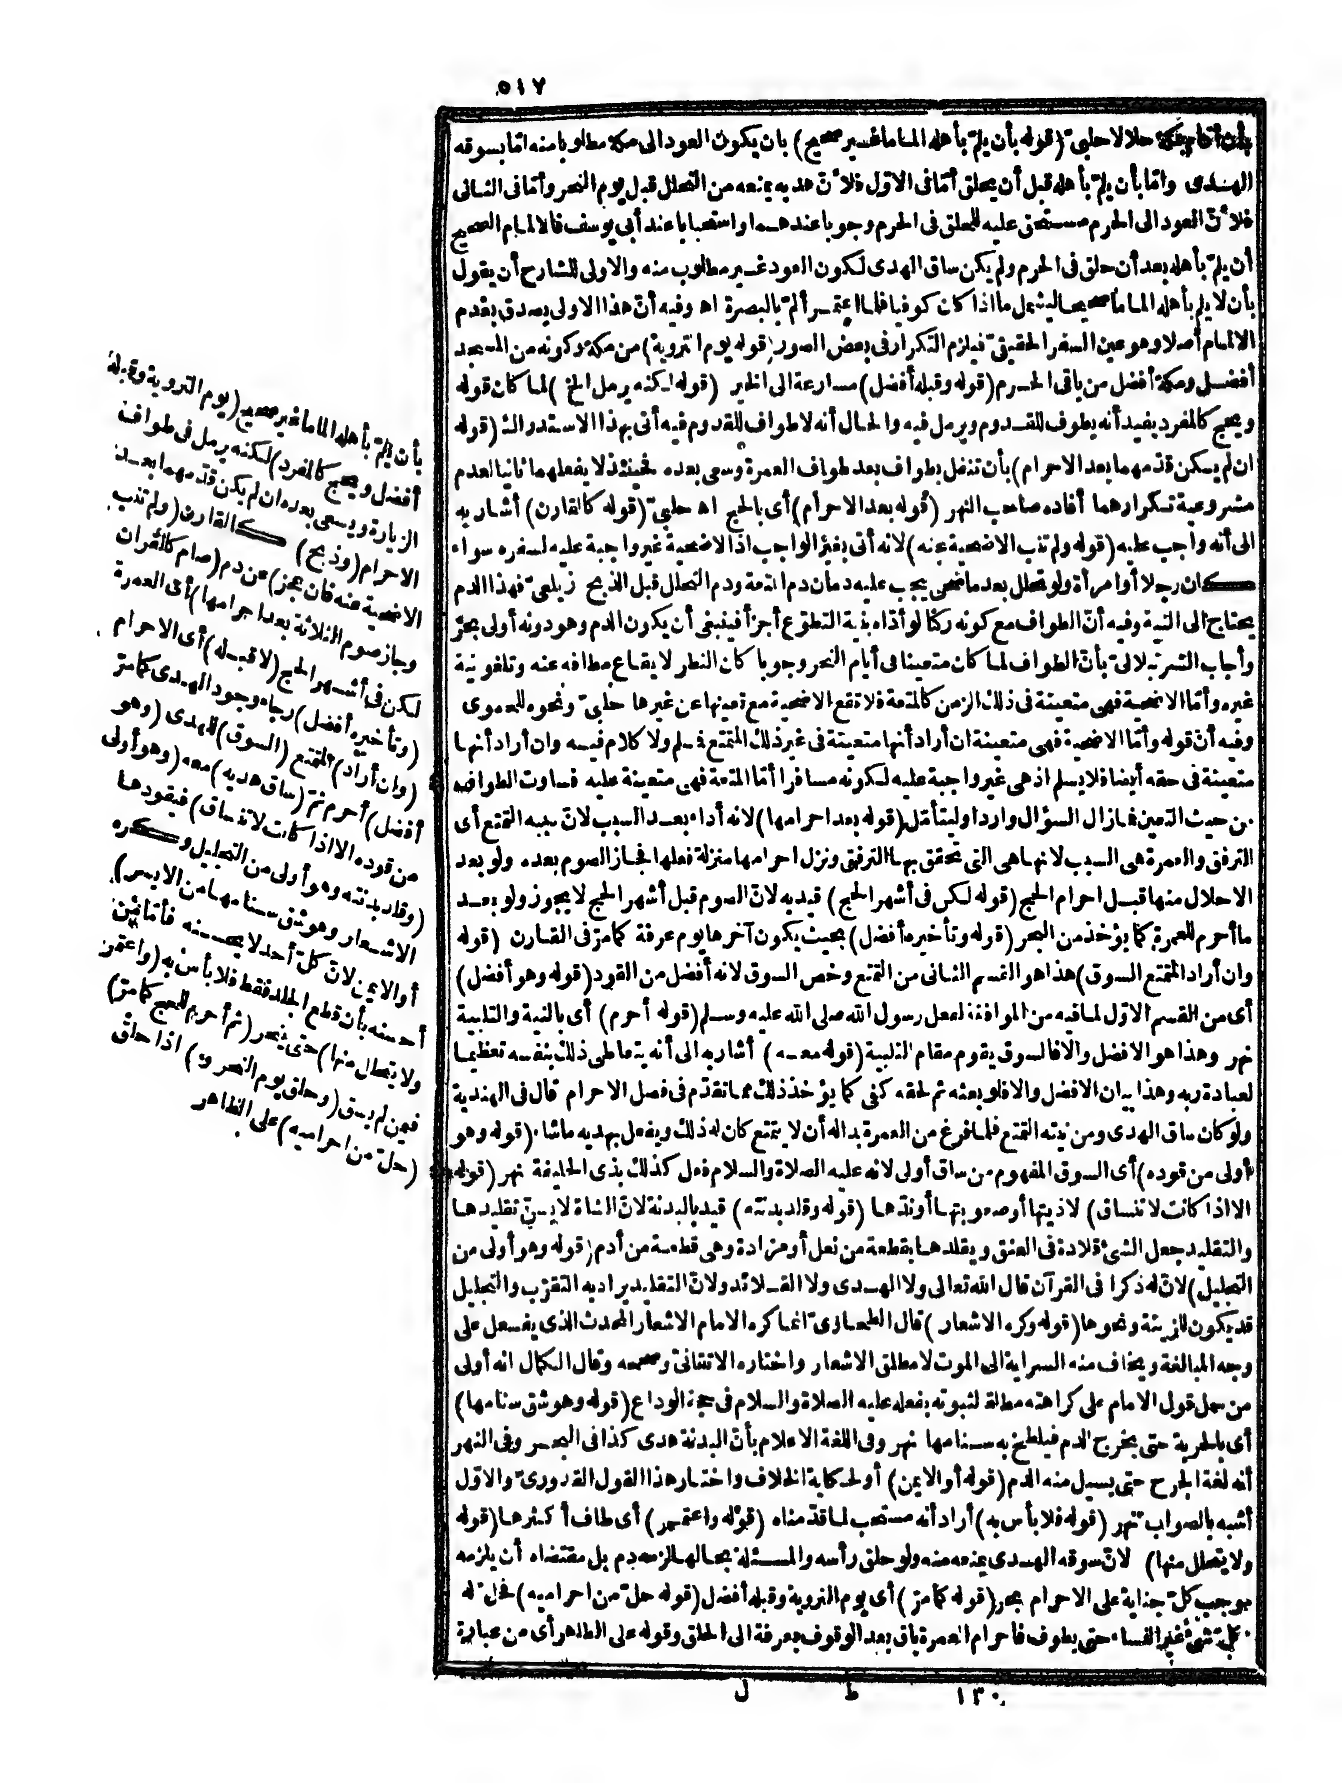 ٥١٧
بأن أقام بمكة حلالا حلبىّ (قوله بأن يلمّ بأهله الماما غير صحيح) بان يكون العود الى مكة مطلوبا منه امّا بسوقه
الهدى وامّا بأن يلمّ بأهله قبل أن يحلق أمّا فى الاوّل فلأنّ هديه يمنعه من التحلل قبل يوم النحر وأمّا فى الثانى
فلأنّ العود الى الحرم مستحق عليه للحلق فى الحرم وجوبا عندهما واستحبابا عند أبى يوسف فالالمام الصحيح
أن يلمّ بأهله بعد أن حلق فى الحرم ولم يكن ساق الهدى لكون العود غير مطلوب منه والاولى للشارح أن يقول
بأن لا يلم بأهله الماما صحيحا ليشمل ما اذا كان كوفيا فلما اعتمر ألمّ بالبصرة اه وفيه أنّ هذا الاولى يصدق بعدم
الالمام أصلا وهو عين السفر الحقيقىّ فيلزم التكرار فى بعض الصور (قوله يوم التروية) من مكة وكونه من المسجد
أفضل ومكة أفضل من باقى الحرم (قوله وقبله أفضل) مسارعة الى الخير (قوله لكنه يرمل الخ) لما كان قوله
ويحج كالمفرد يفيد أنه يطوف للقدوم ويرمل فيه والحال أنه لا طواف للقدوم فيه أتى بهذا الاستدراك (قوله
ان لم يكن قدّمهما بعد الاحرام) بأن تنفل بطواف بعد طواف العمرة وسعى بعده فحينئذ لا يفعلهما ثانيا لعدم
مشروعية تكرارهما أفاده صاحب النهر (قوله بعد الاحرام) أى بالحج اه حلبىّ (قوله كالقارن) أشار به
الى أنه واجب عليه (قوله ولم تنب الاضحية عنه) لانه أتى بغير الواجب اذ الاضحية غير واجبة عليه لسفره سواء
كان رجلا أو امرأة ولو تحلل بعد ما ضحى يجب عليه دمان دم المتعة ودم التحلل قبل الذبح زيلعىّ فهذا الدم
يحتاج الى النية وفيه أنّ الطواف مع كونه ركنا لو أدّاه بنية التطوّع أجزأ فينبغى أن يكون الدم وهو دونه أولى بحر
وأجاب الشرنبلالىّ بأنّ الطواف لما كان متعينا فى أيام النحر وجوبا كان النظر لايقاع ما طافه عنه وتلغو نية
غيره وأمّا الاضحية فهى متعينة فى ذلك الزمن كالمتعة فلا تقع الاضحية مع تعينها عن غيرها حلبىّ ونحوه للحموى
وفيه أنّ قوله وأمّا الاضحية فهى متعينة ان أراد أنها متعينة فى غير ذلك المتمتع فسلم ولا كلام فيه وان أراد أنها
متعينة فى حقه أيضا فلا يسلم اذ هى غير واجبة عليه لكونه مسافرا أمّا المتعة فهى متعينة عليه فساوت الطواف
من حيث التعين فما زال السؤال واردا وليتأمّل (قوله بعد احرامها) لانه أداء بعد السبب لانّ سببه التمتع أى
الترفق والعمرة هى السبب لانها هى التى تحقق بها الترفق ونزل احرامها منزلة فعلها فجاز الصوم بعده ولو بعد
الاحلال منها قبل احرام الحج (قوله لكن فى أشهر الحج) قيد به لانّ الصوم قبل أشهر الحج لا يجوز ولو بعد
ما أحرم للعمرة كما يؤخذ من البحر (قوله وتأخيره أفضل) بحيث يكون آخرها يوم عرفة كما مرّ فى القارن (قوله
وان أراد المتمتع السوق) هذا هو القسم الثانى من التمتع وخص السوق لانه أفضل من القود (قوله وهو أفضل)
أى من القسم الاوّل لما فيه من الموافقة لفعل رسول الله صلى الله عليه وسلم (قوله أحرم) أى بالنية والتلبية
نهر وهذا هو الافضل والا فالسوق يقوم مقام التلبية (قوله معه) أشار به الى أنه يتعاطى ذلك بنفسه تعظيما
لعبادة ربه وهذا بيان الافضل والا فلو بعثه ثم لحقه كفى كما يؤخذ ذلك مما تقدّم فى فصل الاحرام قال فى الهندية
ولو كان ساق الهدى ومن نيته التمتع فلما فرغ من العمرة بدا له أن لا يتمتع كان له ذلك ويفعل بهديه ما شاء (قوله وهو
أولى من قوده) أى السوق المفهوم من ساق أولى لانه عليه الصلاة والسلام فعل كذلك بذى الحليفة نهر (قوله
الا اذا كانت لا تنساق) لاذيتها أو صعوبتها أو ندّها (قوله وقلد بدنته) قيد بالبدنة لانّ الشاة لا يسنّ تقليدها
والتقليد جعل الشئ قلادة فى العنق ويقلدها بقطعة من نعل أو مزادة وهى قطعة من أدم (قوله وهو أولى من
التجليل) لانّ له ذكرا فى القرآن قال الله تعالى ولا الهدى ولا القلائد ولانّ التقليد يراد به التقرّب والتجليل
قد يكون للزينة ونحوها (قوله وكره الاشعار) قال الطحاوىّ انما كره الامام الاشعار المحدث الذى يفعل على
وجه المبالغة ويخاف منه السراية الى الموت لا مطلق الاشعار واختاره الاتقانىّ وصححه وقال الكمال انه أولى
من حمل قول الامام على كراهته مطلقا لثبوته بفعله عليه الصلاة والسلام فى حجة الوداع (قوله وهو شق سنامها)
أى بالحربة حتى يخرج الدم فيلطخ به سنامها نهر وفى اللغة الاعلام بأنّ البدنة هدى كذا فى البحر وفى النهر
أنه لغة الجرح حتى يسيل منه الدم (قوله أو الايمن) أو لحكاية الخلاف واختار هذا القول القدورىّ والاوّل
أشبه بالصواب نهر (قوله فلا بأس به) أراد أنه مستحب لما قدّمناه (قوله واعتمر) أى طاف أكثرها (قوله
ولا يتحلل منها) لانّ سوقه الهدى يمنعه منه ولو حلق رأسه والمسئلة بحالها لزمه دم بل مقتضاه أن يلزمه
موجب كلّ جناية على الاحرام بحر (قوله كما مرّ) أى يوم التروية وقبله أفضل (قوله حلّ من احراميه) فحلّ له
كلّ شئ غير النساء حتى يطوف فاحرام العمرة باق بعد الوقوف بعرفة الى الحلق وقوله على الظاهر أى من عبارة
بأن يلمّ بأهله الماما غير صحيح (يوم التروية وقبله
أفضل ويحج كالمفرد) لكنه يرمل فى طواف
الزيارة ويسعى بعده ان لم يكن قدّمهما بعد
الاحرام (وذبح) كالقارن (ولم تنب
الاضحية عنه فان عجز) عن دم (صام كالقران
وجاز صوم الثلاثة بعد احرامها) أى العمرة
لكن فى أشهر الحج (لا قبله) أى الاحرام
(وتأخيره أفضل) رجاء وجود الهدى كما مرّ
(وان أراد) المتمتع (السوق) للهدى (وهو
أفضل) أحرم ثمّ (ساق هديه) معه (وهو أولى
من قوده الا اذا كانت لا تنساق) فيقودها
(وقلد بدنته وهو أولى من التجليل وكره
الاشعار وهو شق سنامها من الايسر)
أو الايمن لانّ كلّ أحد لا يحسنه فأمّا من
أحسنه بأن قطع الجلد فقط فلا بأس به (واعتمر
ولا يتحلل منها) حتى ينحر (ثم أحرم للحج كما مرّ)
فيمن لم يسق (وحلق يوم النحر و) اذا حلق
(حلّ من احراميه) على الظاهر
١٣٠ ط ل